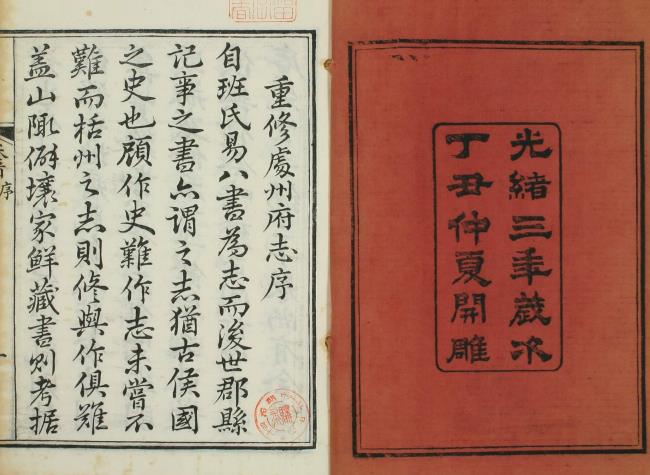 光緒三年歲次
丁丑仲夏開雕
重修處州府志序
自班氏易八書為志而後世郡縣
記事之書亦謂之志猶古侯國
之史也顧作史難作志未嘗不
難而栝州之志則修與作俱難
葢山陬僻壤家鮮藏書則考據
序